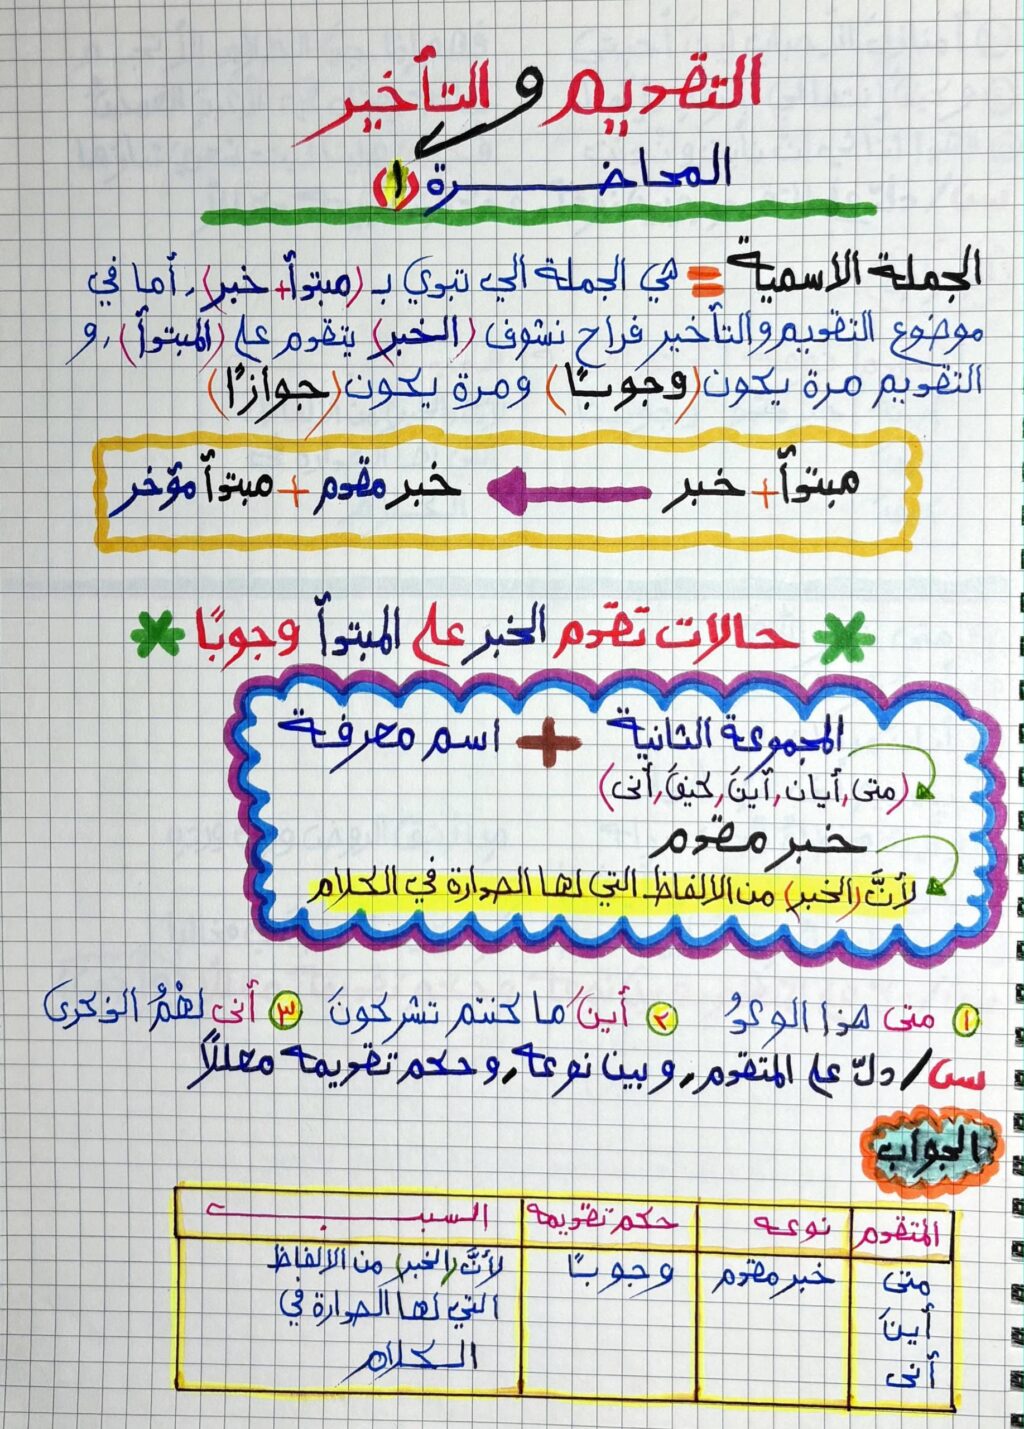 التقديم والتأخير
المحاضرة (١)
الجملة الاسمية = هي الجملة الي تبدي بـ (مبتدأ + خبر)، أما في
موضوع التقديم والتأخير فراح نشوف (الخبر) يتقدم على (المبتدأ)، و
التقديم مرة يكون (وجوبًا) ومرة يكون (جوازًا)
مبتدأ + خبر ← خبر مقدم + مبتدأ مؤخر
* حالات تقدم الخبر على المبتدأ وجوبًا *
المجموعة الثانية + اسم معرفة
(متى, أيان, أينَ, كيفَ, أنى)
خبر مقدم
لأنَّ (الخبر) من الالفاظ التي لها الصدارة في الكلام
١ متى هذا الوعدُ ٢ أينَ ما كنتم تشركونَ ٣ أنى لهُمُ الذكرى
س/ دلّ على المتقدم, وبين نوعه, وحكم تقديمه معللًا
الجواب
المتقدم نوعه حكم تقديمه السبب
متى خبر مقدم وجوبًا لأنَّ (الخبر) من الالفاظ
أينَ التي لها الصدارة في
أنى الكلام